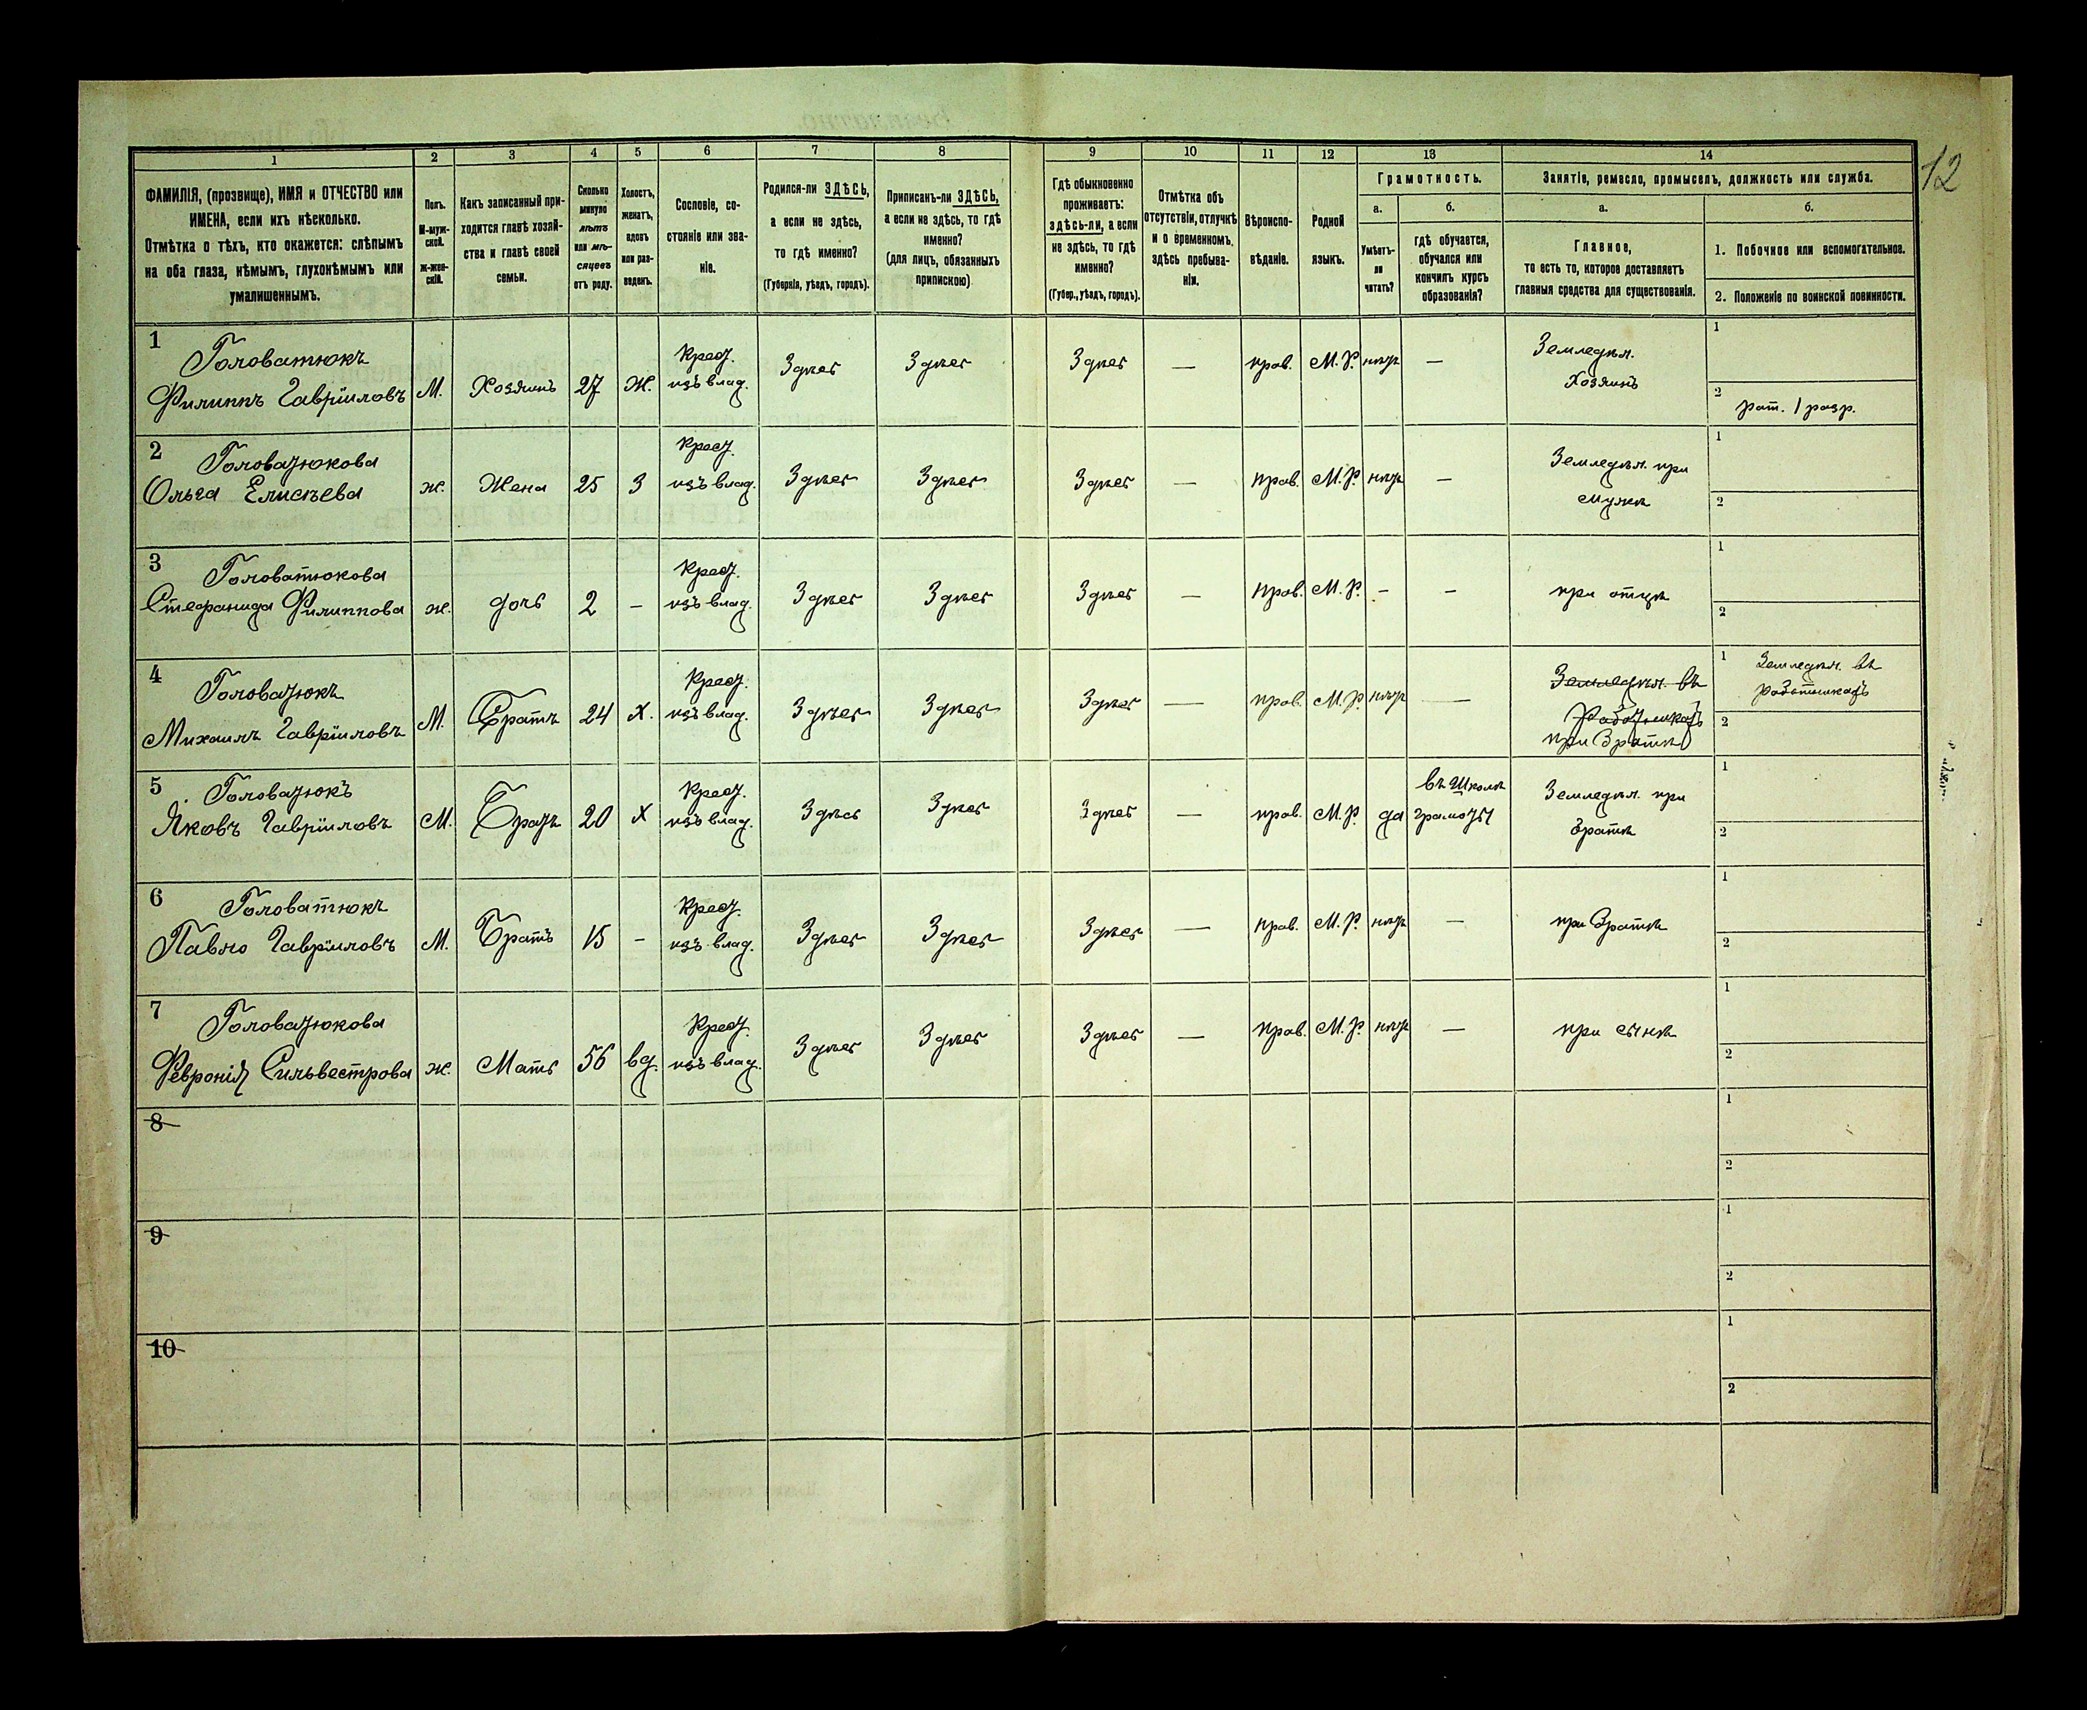 12
1 2 3 4 5 6 7 8 9 10 11 12 13 14
ФАМИЛІЯ, (прозвище), ИМЯ и ОТЧЕСТВО или
ИМЕНА, если ихъ нѣсколько.
Отмѣтка о тѣхъ, кто окажется: слѣпымъ
на оба глаза, нѣмымъ, глухонѣмымъ или
умалишеннымъ.
Полъ.
М-муж-
ской.
ж-жен-
скій.
Какъ записанный при-
ходится главѣ хозяй-
ства и главѣ своей
семьи.
Сколько
минуло
лѣтъ
или мѣ-
сяцевъ
отъ роду.
Холостъ,
женатъ,
вдовъ
или раз-
веденъ.
Сословіе, со-
стояніе или зва-
ніе.
Родился-ли ЗДѢСЬ,
а если не здѣсь,
то гдѣ именно?
(Губернія, уѣздъ, городъ).
Приписанъ-ли ЗДѢСЬ,
а если не здѣсь, то гдѣ
именно?
(для лицъ, обязанныхъ
припискою)
Гдѣ обыкновенно
проживаетъ:
здѣсь-ли, а если
не здѣсь, то гдѣ
именно?
(Губер., уѣздъ, городъ).
Отмѣтка объ
отсутствіи, отлучкѣ
и о временномъ
здѣсь пребыва-
ніи.
Вѣроиспо-
вѣданіе.
Родной
языкъ.
Грамотность.
а.
Умѣетъ-
ли
читать?
б.
гдѣ обучается,
обучался или
кончилъ курсъ
образованія?
Занятіе, ремесло, промыселъ, должность или служба.
а.
Главное,
то есть то, которое доставляетъ
главныя средства для существованія.
б.
1. Побочное или вспомогательное.
2. Положеніе по воинской повинности.
1 Головатюкъ
Филиппъ Гавріиловъ М. Хозяинъ 27 Ж. Крест. изъ влад. Здѣсь Здѣсь Здѣсь — прав. М. Р. нѣтъ — Земледѣл. Хозяинъ 1
2 рат. 1 разр.
2 Головатюкова
Ольга Елисѣева ж. Жена 25 З Крест. изъ влад. Здѣсь Здѣсь Здѣсь — прав. М. Р. нѣтъ — Земледѣл. при мужѣ 1
2
3 Головатюкова
Стефанида Филиппова ж. дочь 2 – Крест. изъ влад. Здѣсь Здѣсь Здѣсь — прав. М. Р. – – при отцѣ 1
2
4 Головатюкъ
Михаилъ Гавріиловъ М. Братъ 24 Х. Крест. изъ влад. Здѣсь Здѣсь Здѣсь — прав. М. Р. нѣтъ — Земледѣл. въ Работникахъ при Братѣ 1 Земледѣл. въ работникахъ
2
5 Головатюкъ
Яковъ Гавріиловъ М. Братъ 20 Х Крест. изъ влад. Здѣсь Здѣсь Здѣсь — прав. М. Р. да въ Школѣ грамоты Земледѣл. при братѣ 1
2
6 Головатюкъ
Павло Гавріиловъ М. Братъ 15 – Крест. изъ влад. Здѣсь Здѣсь Здѣсь — прав. М. Р. нѣтъ — при Братѣ 1
2
7 Головатюкова
Февронія Сильвестрова ж. Мать 56 вд. Крест. изъ влад. Здѣсь Здѣсь Здѣсь — прав. М. Р. нѣтъ — при сынѣ 1
2
8 1
2
9 1
2
10 1
2